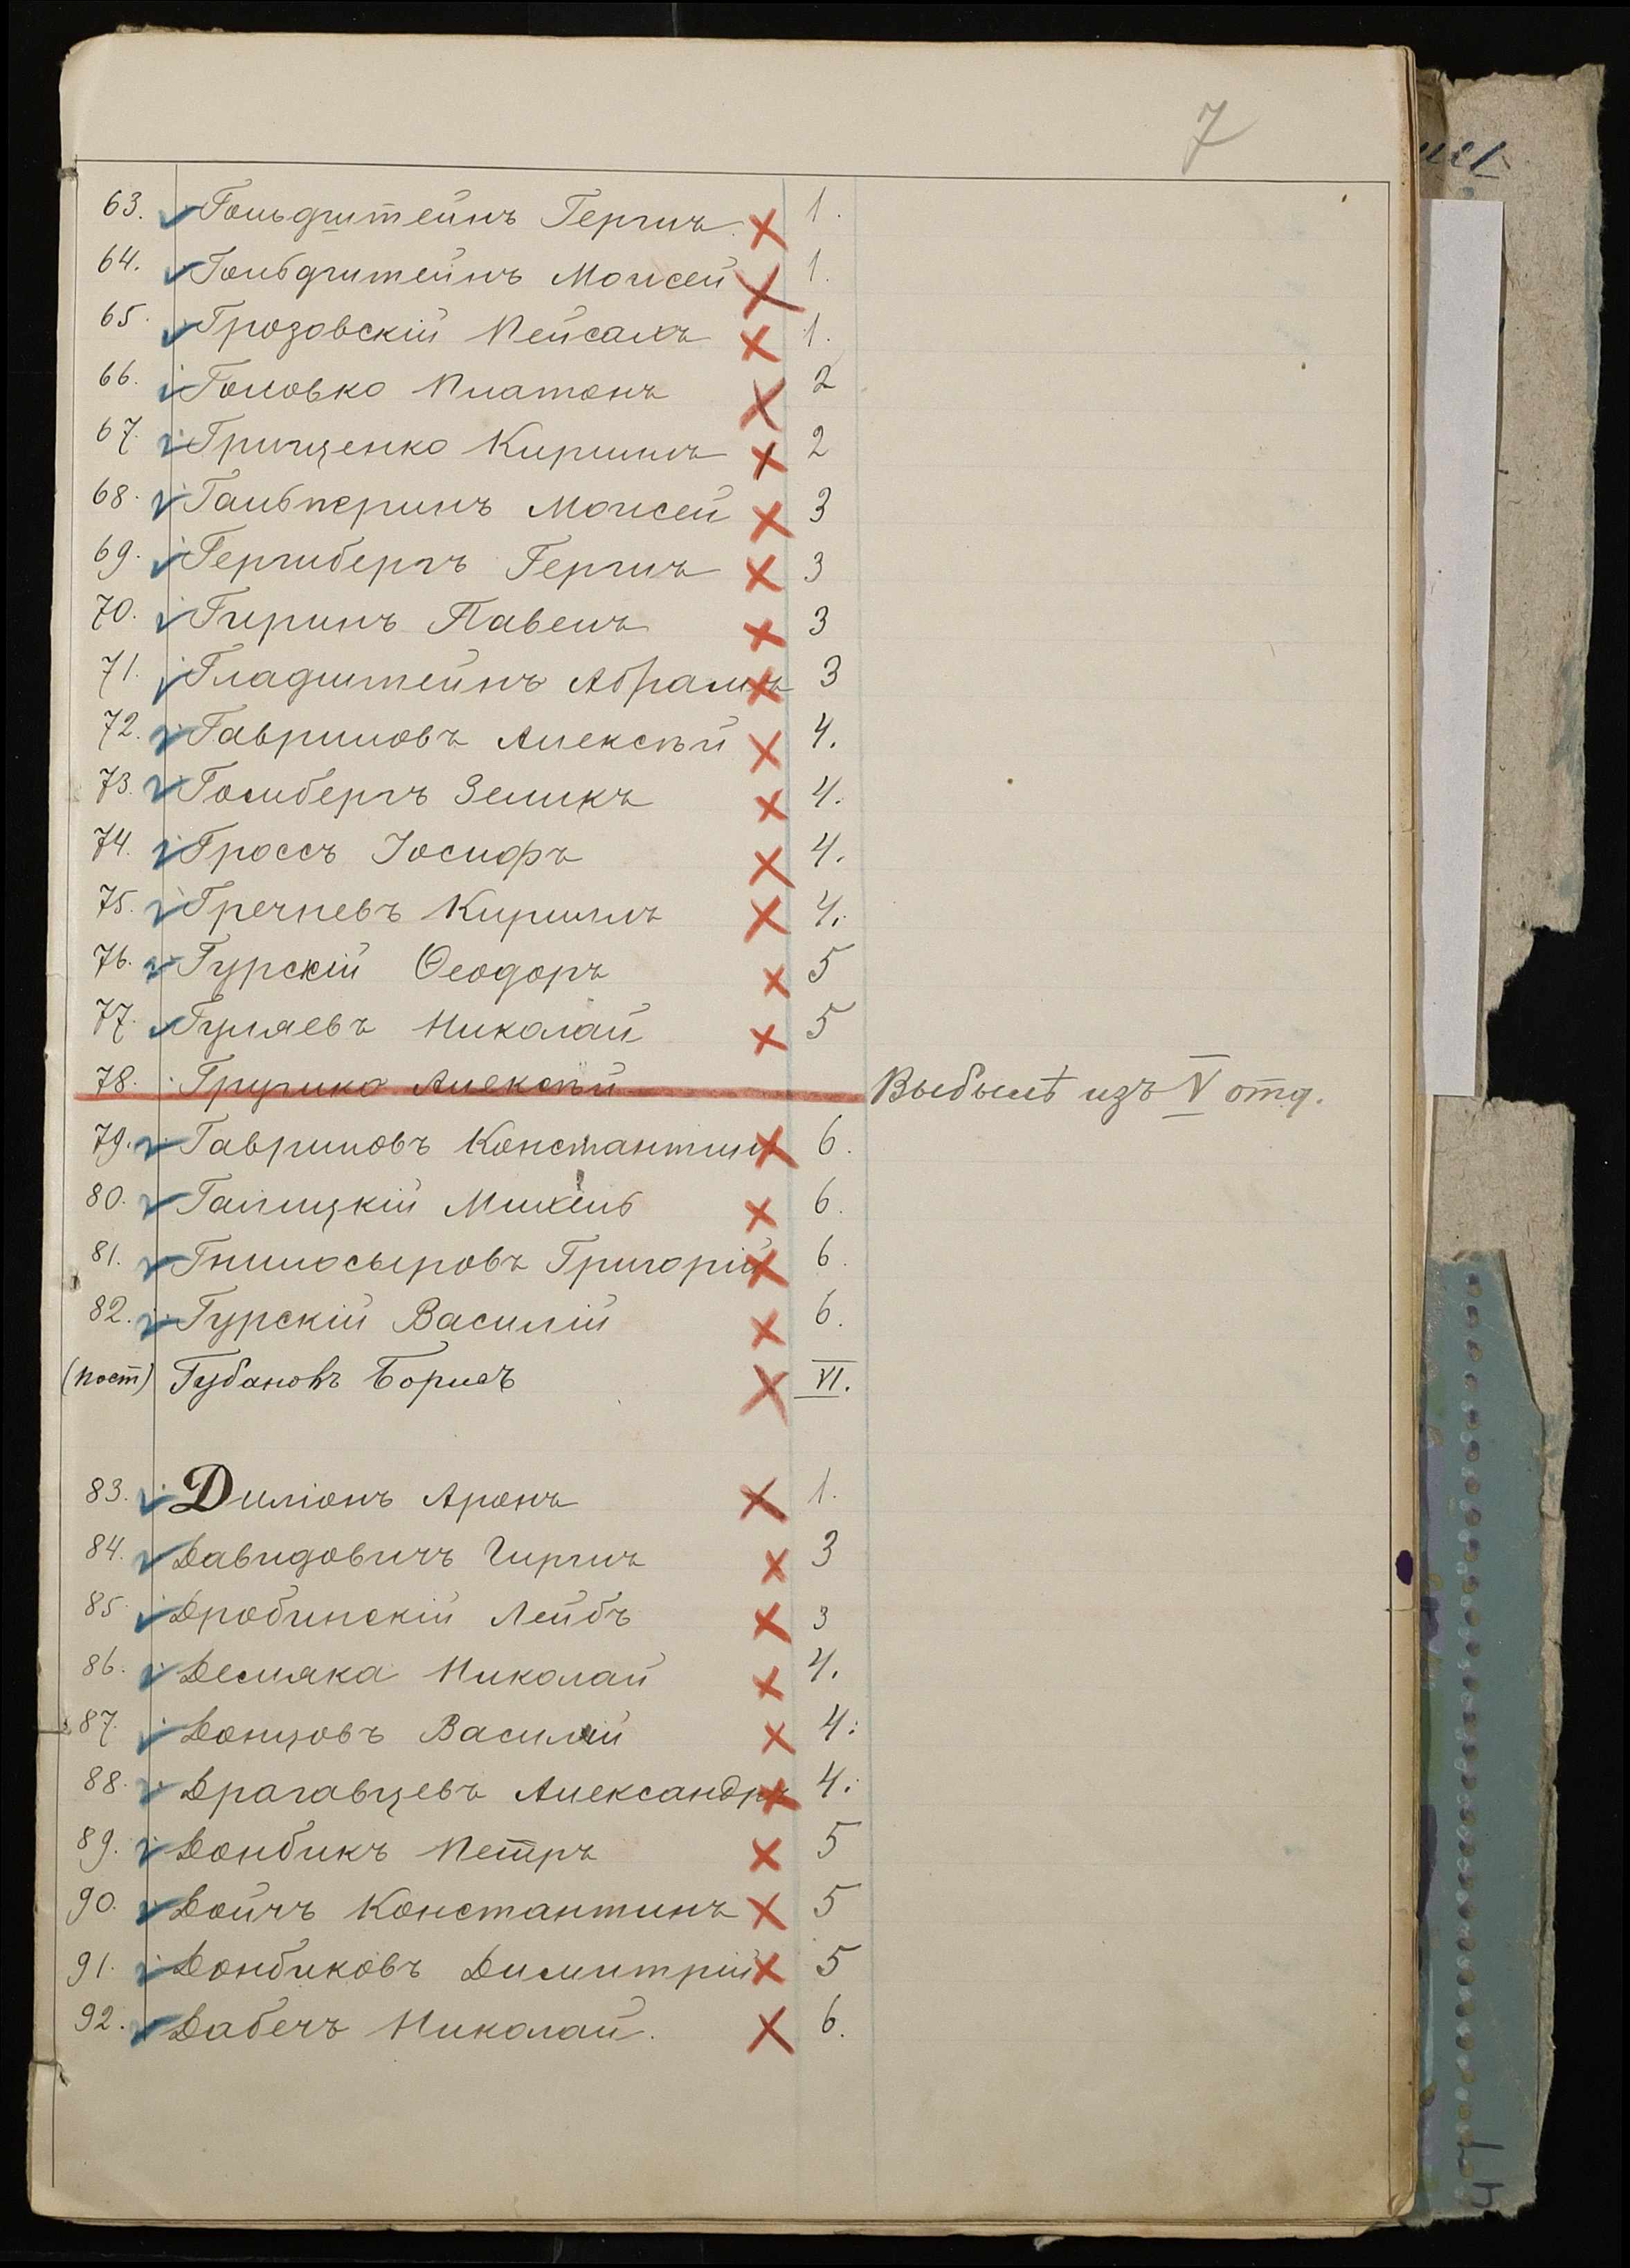 7
63. Гольдштейнъ Гершъ 1.
64. Гольдштейнъ Моисей 1.
65. Грозовскій Пейсахъ 1.
66. Головко Платонъ 2
67. Грищенко Кириллъ 2
68. Гальперинъ Моисей 3
69. Гершбергъ Гершъ 3
70. Гиринъ Павелъ 3
71. Гладштейнъ Абрамъ 3
72. Гавриловъ Алексѣй 4.
73. Гольбергъ Зеликъ 4.
74. Гроссъ Іосифъ 4.
75. Гречневъ Кириллъ 4.
76. Гурскій Ѳеодоръ 5
77. Гуляевъ Николай 5
78. Алексѣй Выбылъ изъ V отд.
79. Гавриловъ Константинъ 6.
80. Галицкій Михель 6.
81. Гнилосыровъ Григорій 6.
82. Гурскій Василій 6.
(пост) Губановъ Борисъ VI.
83. Диліонъ Аронъ 1.
84. Давидовичъ Гиршъ 3
85. Дробинскій Лейбъ 3
86. Николай 4.
87. Донцовъ Василій 4.
88. Драгавцевъ Александръ 4.
89. Донбикъ Петръ 5
90. Дойчъ Константинъ 5
91. Донбиковъ Димитрій 5
92. Дабечъ Николай. 6.